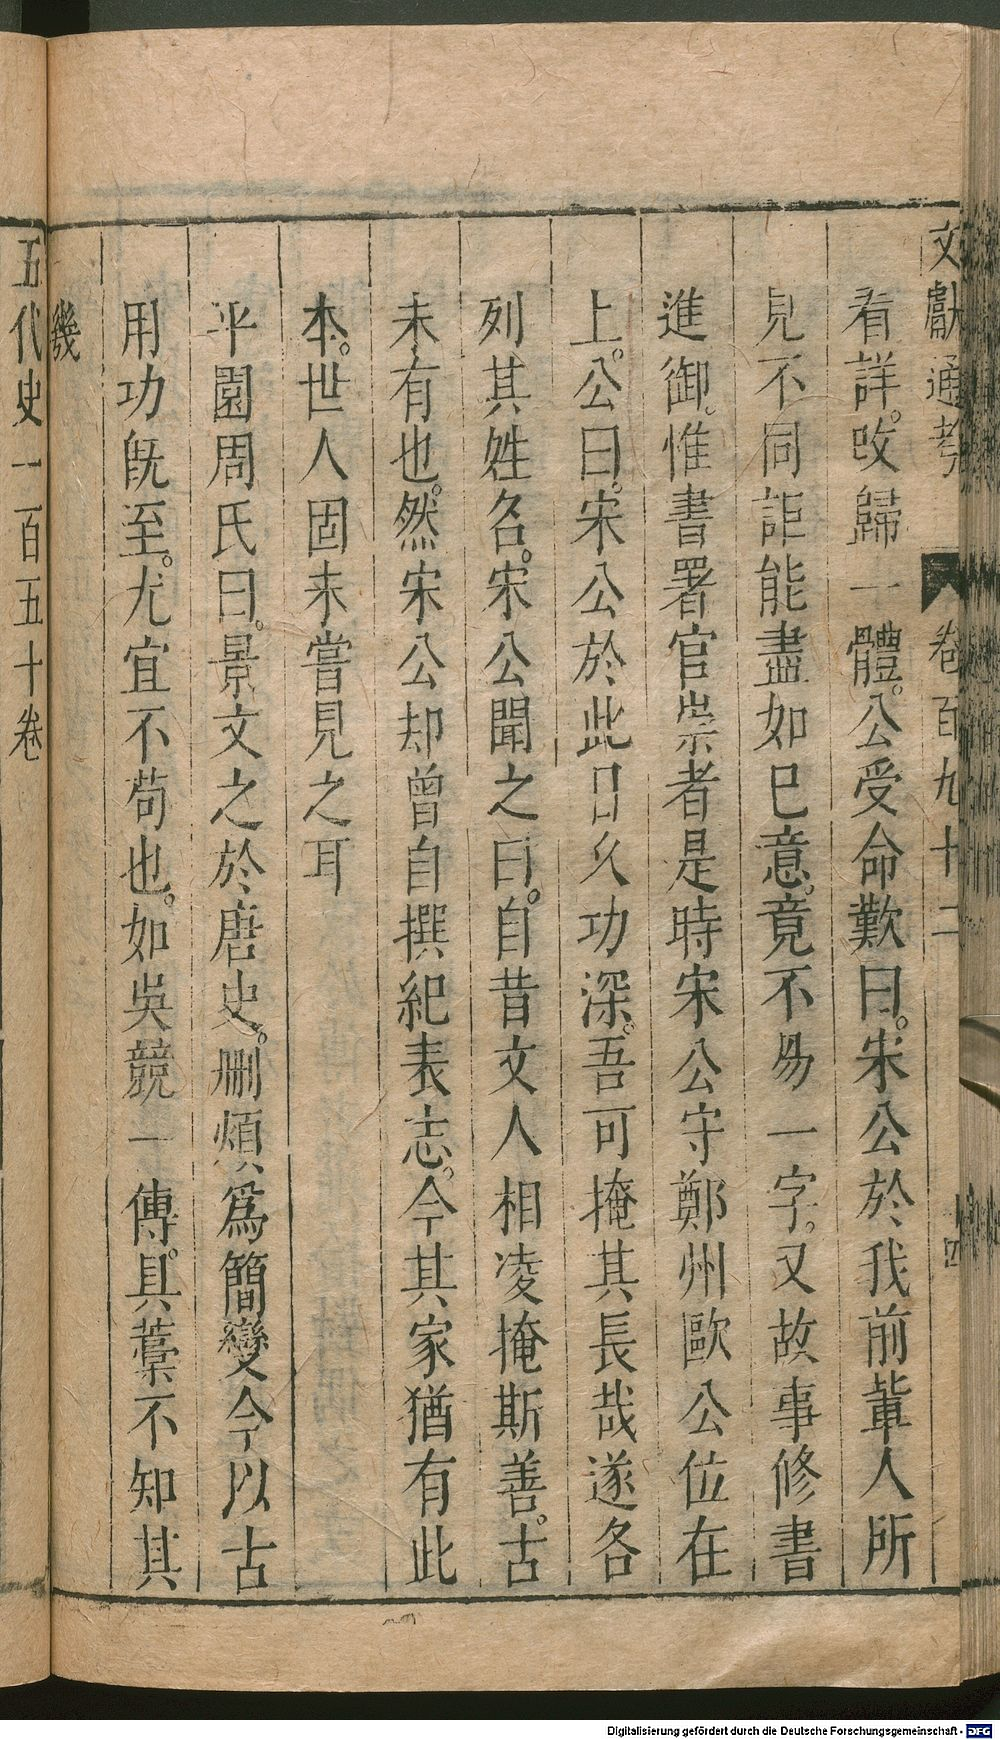 文獻通考 卷百九十二 四
看詳。改歸一體。公受命歎曰。宋公於我前輩人所
見不同詎能盡如巳意。竟不易一字。又故事修書
進御。惟書署官崇者是時宋公守鄭州歐公位在
上。公曰。宋公於此日久功深。吾可掩其長哉遂各
列其姓名。宋公聞之曰。自昔文人相凌掩斯善。古
未有也。然宋公却曾自撰紀表志。今其家猶有此
本。世人固未嘗見之耳
平園周氏曰。景文之於唐史。刪煩爲簡變今以古
用功旣至。尤宜不苟也。如吳競一傳。具藁不知其
幾
五代史一百五十卷
Digitalisierung gefördert durch die Deutsche Forschungsgemeinschaft - DFG